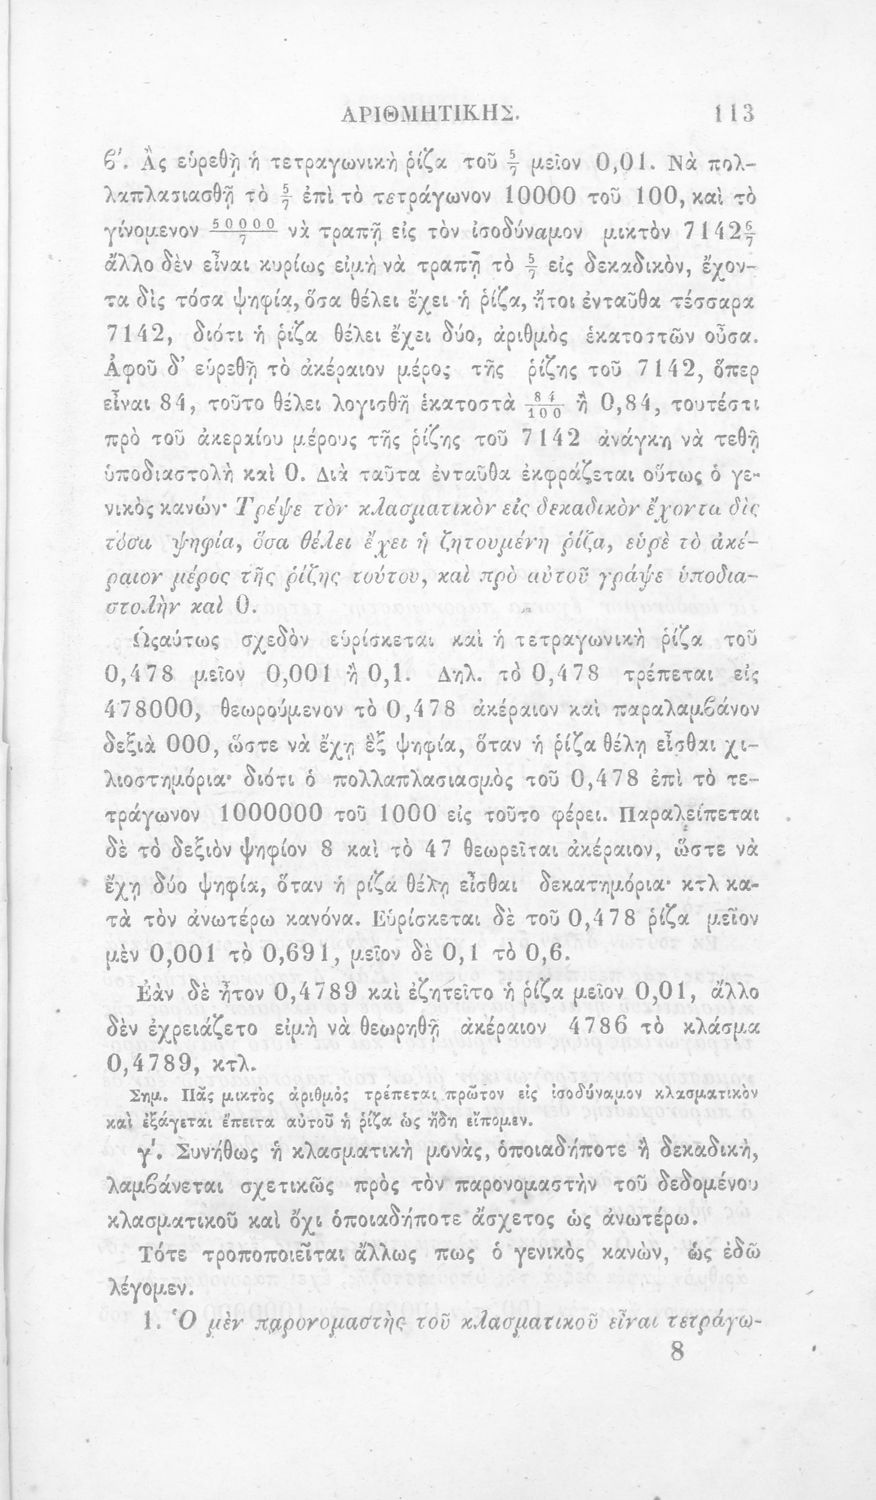 ΑΡΙΘΜΗΤΙΚΗΣ. 113
β΄. Ἂς εὑρεθῇ ἡ τετραγωνικὴ ῥίζα τοῦ 5/7 μεῖον 0,01. Νὰ πολ-
λαπλασιασθῇ τὸ 5/7 ἐπὶ τὸ τετράγωνον 10000 τοῦ 100, καὶ τὸ
γίνομενον 50000/7 νὰ τραπῇ εἰς τὸν ἰσοδύναμον μικτὸν 7142 6/7
ἄλλο δὲν εἶναι κυρίως εἰμὴ νὰ τραπῇ τὸ 5/7 εἰς δεκαδικὸν, ἔχον-
τα δὶς τόσα ψηφία, ὅσα θέλει ἔχει ἡ ῥίζα, ἤτοι ἐνταῦθα τέσσαρα
7142, διότι ἡ ῥίζα θέλει ἔχει δύο, ἀριθμὸς ἑκατοστῶν οὖσα.
Ἀφοῦ δ’ εὑρεθῇ τὸ ἀκέραιον μέρος τῆς ῥίζης τοῦ 7142, ὅπερ
εἶναι 84, τοῦτο θέλει λογισθῆ ἑκατοστὰ 84/100 ἢ 0,84, τουτέστι
πρὸ τοῦ ἀκεραίου μέρους τῆς ῥίζης τοῦ 7142 ἀνάγκη νὰ τεθῇ
ὑποδιαστολὴ καὶ 0. Διὰ ταῦτα ἐνταῦθα ἐκφράζεται οὕτως ὁ γε-
νικὸς κανών· Τρέψε τὸν κλασματικὸν εἰς δεκαδικὸν ἔχοντα δὶς
τόσα ψηφία, ὅσα θέλει ἔχει ἡ ζητουμένη ῥίζα, εὑρὲ τὸ ἀκέ-
ραιον μέρος τῆς ῥίζης τούτου, καὶ πρὸ αὐτοῦ γράψε ὑποδια-
στολὴν καὶ 0.
Ὡςαύτως σχεδὸν εὑρίσκεται καὶ ἡ τετραγωνικὴ ῥίζα τοῦ
0,478 μεῖον 0,001 ἢ 0,1. Δηλ. τὸ 0,478 τρέπεται εἰς
478000, θεωρούμενον τὸ 0,478 ἀκέραιον καὶ παραλαμβάνον
δεξιὰ 000, ὥστε νὰ ἔχῃ ἓξ ψηφία, ὅταν ἡ ῥίζα θέλῃ εἶσθαι χι-
λιοστημόρια· διότι ὁ πολλαπλασιασμὸς τοῦ 0,478 ἐπὶ τὸ τε-
τράγωνον 1000000 τοῦ 1000 εἰς τοῦτο φέρει. Παραλείπεται
δὲ τὸ δεξιὸν ψηφίον 8 καὶ τὸ 47 θεωρεῖται ἀκέραιον, ὥστε νὰ
ἔχῃ δύο ψηφία, ὅταν ἡ ῥίζα θέλῃ εἶσθαι δεκατημόρια· κτλ κα-
τὰ τὸν ἀνωτέρω κανόνα. Εὑρίσκεται δὲ τοῦ 0,478 ῥίζα μεῖον
μὲν 0,001 τὸ 0,691, μεῖον δὲ 0,1 τὸ 0,6.
Ἐὰν δὲ ἦτον 0,4789 καὶ ἐζητεῖτο ἡ ῥίζα μεῖον 0,01, ἄλλο
δὲν ἐχρειάζετο εἰμὴ νὰ θεωρηθῇ ἀκέραιον 4786 τὸ κλάσμα
0,4789, κτλ.
Σημ. Πᾶς μικτὸς ἀριθμὸς τρέπεται πρῶτον εἰς ἰσοδύναμον κλασματικὸν
καὶ ἐξάγεται ἔπειτα αὐτοῦ ἡ ῥίζα ὡς ἤδη εἴπομεν.
γ΄. Συνήθως ἡ κλασματικὴ μονὰς, ὁποιαδήποτε ἢ δεκαδικὴ,
λαμβάνεται σχετικῶς πρὸς τὸν παρονομαστὴν τοῦ δεδομένου
κλασματικοῦ καὶ ὄχι ὁποιαδήποτε ἄσχετος ὡς ἀνωτέρω.
Τότε τροποποιεῖται ἄλλως πως ὁ γενικὸς κανὼν, ὡς ἐδῶ
λέγομεν.
1. Ὁ μὲν παρονομαστὴς τοῦ κλασματικοῦ εἶναι τετράγω-
8